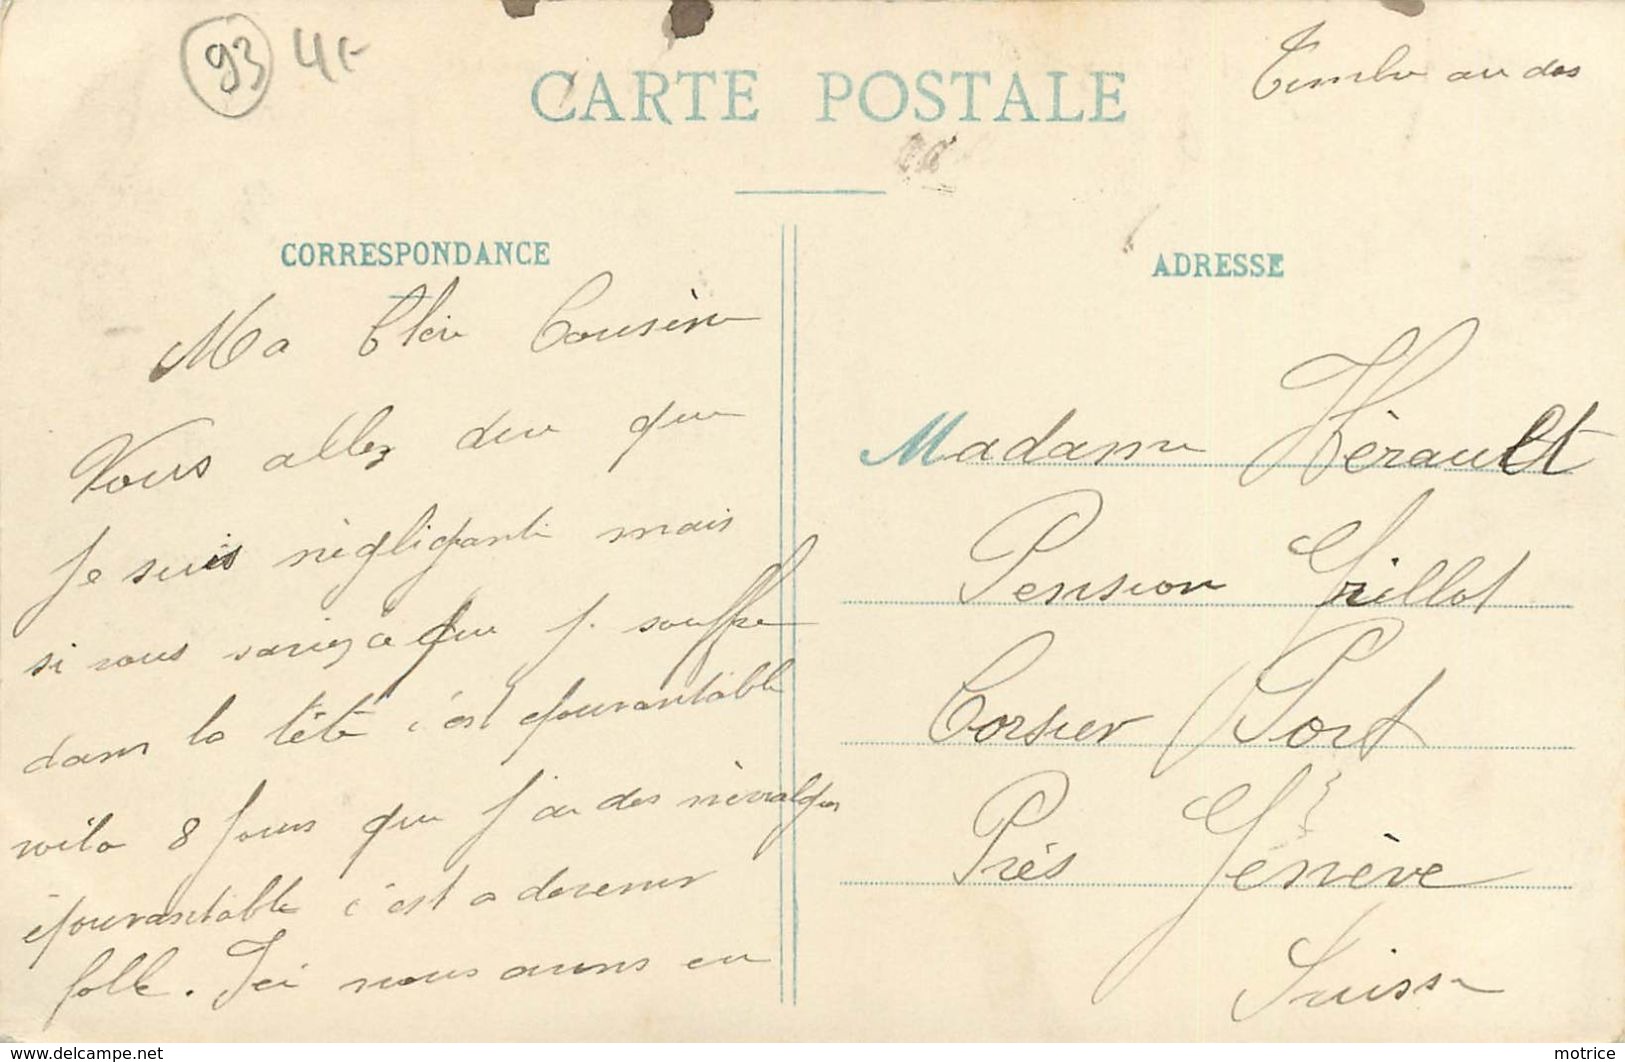 93 4F
Timbre au dos
CARTE POSTALE
CORRESPONDANCE
Ma Chère Cousine
Vous allez dire que
Je suis négligente mais
si vous saviez ce que je souffre
dans la tête c'est épouvantable
voila 8 jours que j'ai des névralgies
épouvantable c'est a devenir
folle. Ici nous avons eu
ADRESSE
Madame Hérault
Pension Grillot
Corsier Port
Près Génève
Suisse
www.delcampe.net
motrice